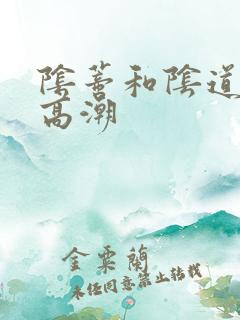 陰蒂和陰道
高潮
金粟蘭
未經同意禁止轉載